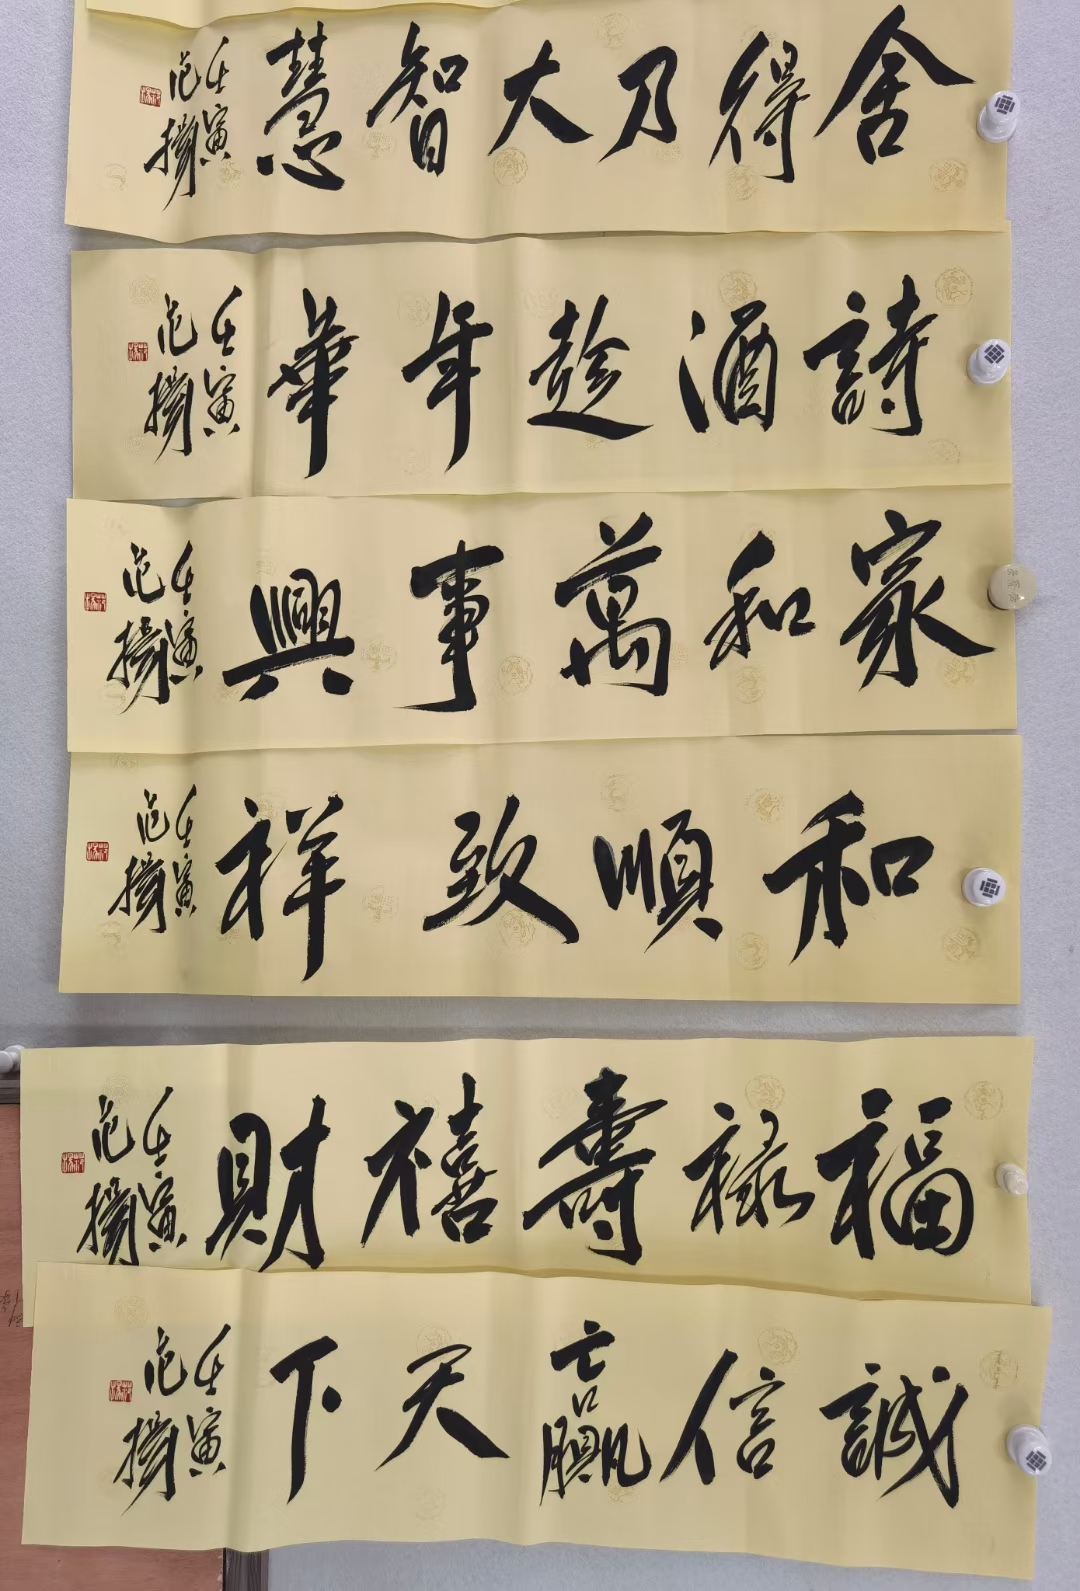 舍得乃大智慧
壬寅
范
詩酒趁年華
壬寅
范
家和萬事興
壬寅
范
和順致祥
壬寅
范
福祿壽禧財
壬寅
范
誠信贏天下
壬寅
范